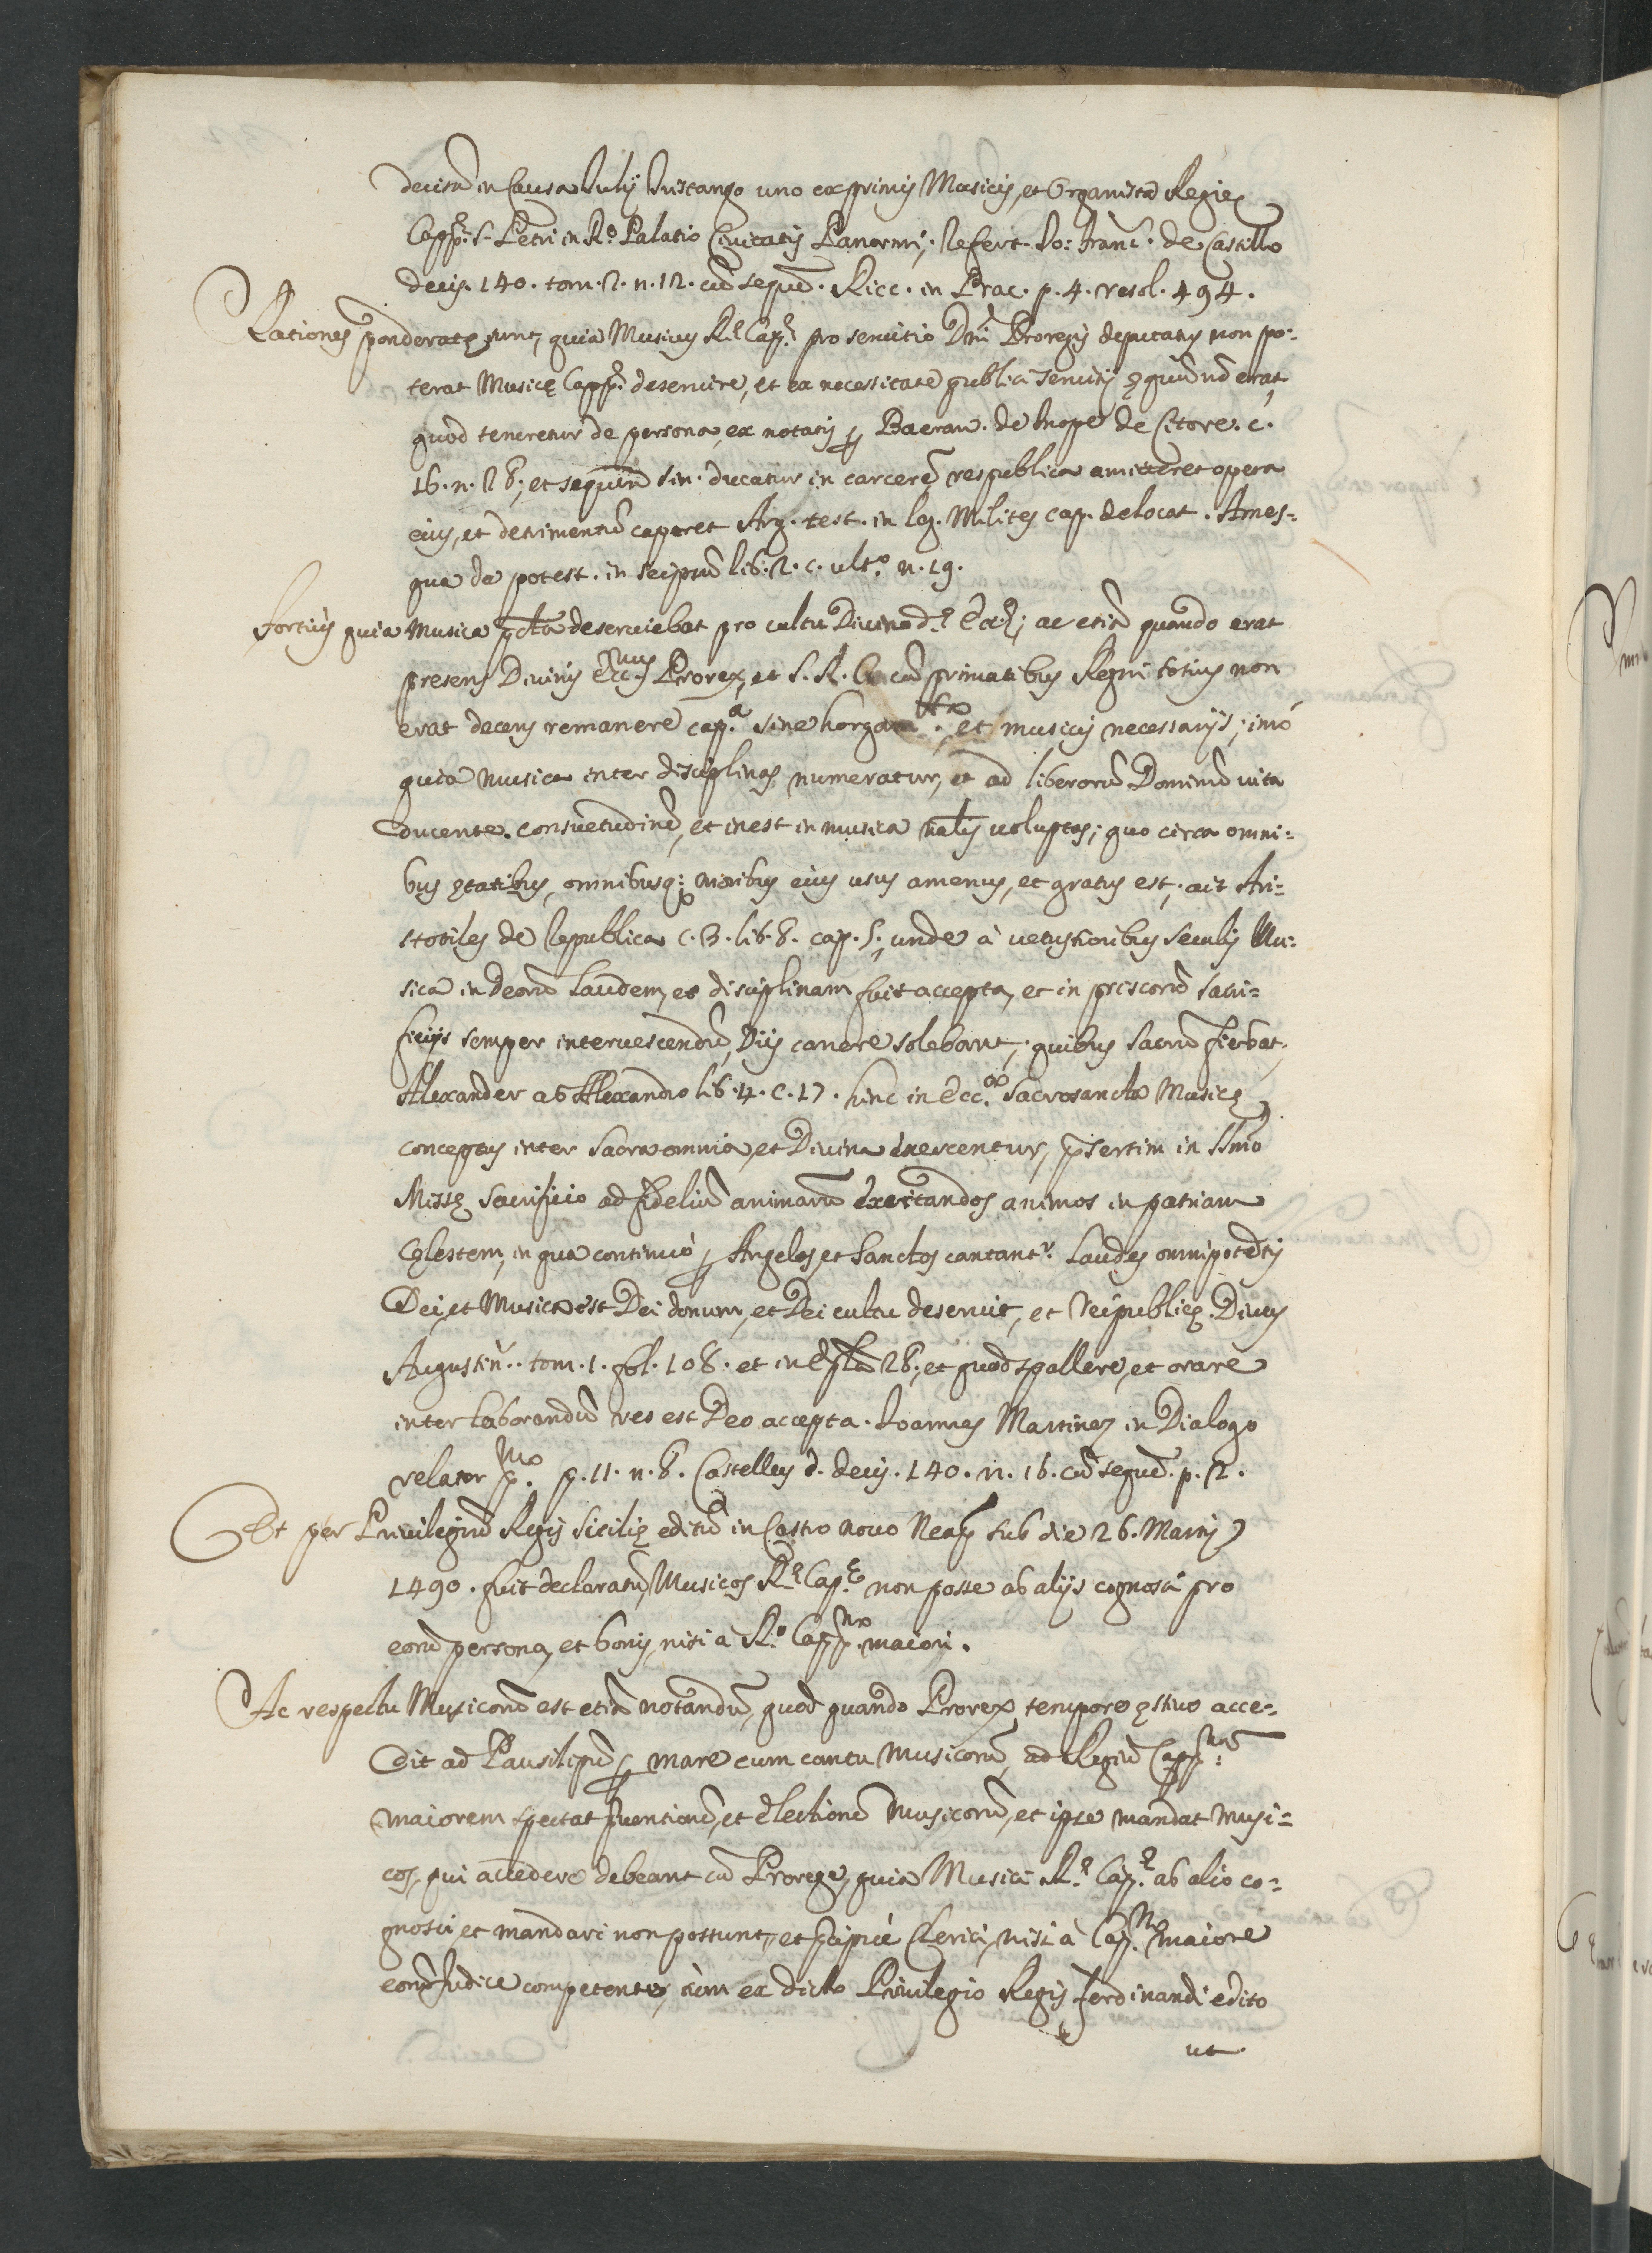 decisũ in Causa Iulij Oristango uno ex primis Musicis, et Organista Regie
Capp.ę S. Petri in R.o Palatio Civitatis Panormi; refert. Io: Franc. de Castillo
decis. 140. tom. 2. n. 12. cũ sequẽ. Ricc. in Prac. p. 4. resol. 494.
Rationes ponderatę sunt, quia Musicus R.ę Cap.ę pro servitio Dñi Proregis deputatus non po:
terat Musicę Capp.ę deservire, et ex necessitate publici servitij ęquũ nõ erat,
quod teneretur de persona, ex notatis de Inope de
16. n. 28; et sequẽ sin. ducatur in carcerẽ respublica amitteret opera
eius, et detrimentũ caperet Arg. test. in leg. Milites cap. de locat. Ames=
qua de potest. in seipsũ lib. 2. c. ult.o n. 19.
Fortius quia Musica pcta deserviebat pro cultu Divino d.ę Ecc.ę; ac etiã quando erat
presens Divinis Ecc.mus Prorex, et S. R. C. cũ primatibus Regni totius non
erat decens remanere cap.a sine horga et musicis necessarijs; imò
quia musica inter disciplinas numeratur, et ad liberorũ Dominũ vita
ducente. consuetudinẽ, et inest in musica nãlis voluptas; quo circa omni=
bus ętatibus, omnibusq: moribus eius usus amenus, et gratus est, ait Ari=
stotiles de Republica c. 3. lib. 8. cap. 5; unde à vetustioribus seculis Mu:
sica in deorũ laudem, et disciplinam fuit accepta, et in priscorũ sacri=
ficijs semper intervescendũ, Dijs canere solebant, quibus sacrũ fiebat,
Alexander ab Alexandro lib. 4. c. 17. hinc in Ecc.a Sacrosancta Musicę
conceptus inter sacra omnia, et Divina exercentur, p̃sertim in SSmo
Missę sacrificio ad fidelium animarũ excitandos animos in patriam
Cęlestem, in qua continuò p Angelos, et Sanctos cantant.r laudes omnipotẽtis
Dei, et Musica est Dei donum, et Dei cultu deservit, et Reipublicę. Divus
Augustin.. tom. 1. fol. 108. et in Epla 28; et quod psallere, et orare
inter laborandũ res est Deo accepta. Ioannes Martinez in Dialogo
relator p.mo p. 11. n. 8. Castellus d. decis. 140. n. 16. cũ sequẽ. p. 2.
Et per Privilegiũ Regis Sicilię editũ in Castro novo Neap. sub die 26. Martij
1490. fuit declaratũ, Musicos R.ę Cap.ę non posse ab alijs cognosci pro
eorũ persona, et bonis, nisi à R.o Capp.no maiori.
Ac respectu Musicorũ est etiã notandũ, quod quando Prorex, tempore ęstivo acce-
dit ad Pausilipũ p mare cum cantu Musicorũ, ad Regiũ Capp.num
maiorem spectat et electionẽ Musicorũ, et ipse mandat Musi=
cos, qui accedere debeant cũ Prorege, quia Musici R.ę Cap.ę ab alio co=
gnosci, et mandari non possunt, et Clerici, nisi à Cap.no maiore
eorũ Iudice competente, tùm ex dicto Privilegio Regis Ferdinandi edito
ut